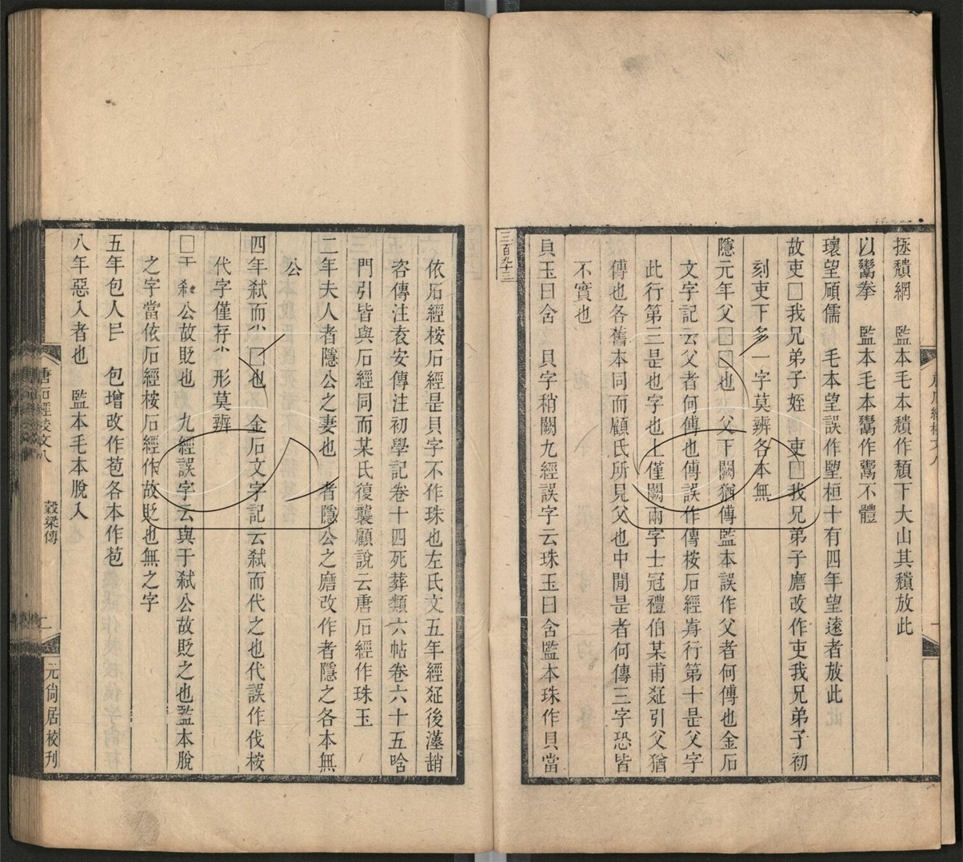 拯積網　監本毛本積作穨下大山其穨放此
以鬻拳　監本毛本鬻作鬻不體
瓌望頋儒　毛本望誤作朢桓十有四年望遠者放此
故吏□我兄弟子姪　吏□我兄弟子磨改作吏我兄弟子初
刻吏下多一字莫辨各本無
隱元年父□□也　父下闕猶傅監本誤作父者何傅也金石
文字記云父者何傅也傅誤作傳桉石經前行第十是父字
此行第三是也字也上僅闕兩字士冠禮伯某甫疏引父猶
傅也各舊本同而顧氏所見父也中閒是者何傳三字恐皆
不實也
貝玉曰含　貝字稍闕九經誤字云珠玉曰含監本珠作貝當
三百九十三
依石經桉石經是貝字不作珠也左氏文五年經疏後漢趙
咨傳注袁安傳注初學記卷十四死葬類六帖卷六十五唅
門引皆與石經同而某氏復襲顧說云唐石經作珠玉
二年夫人者隱公之妻也　者隱公之磨改作者隱之各本無
公
四年弑而　□也　金石文字記云弑而代之也代誤作伐桉
代字僅存　形莫辨
□于　公故貶也　九經誤字云與于弑公故貶之也監本脫
之字當依石經桉石經作故貶也無之字
五年包人民　包增改作苞各本作苞
八年惡入者也　監本毛本脫入
唐石經校文八　穀梁傳　二
元尚居校刊